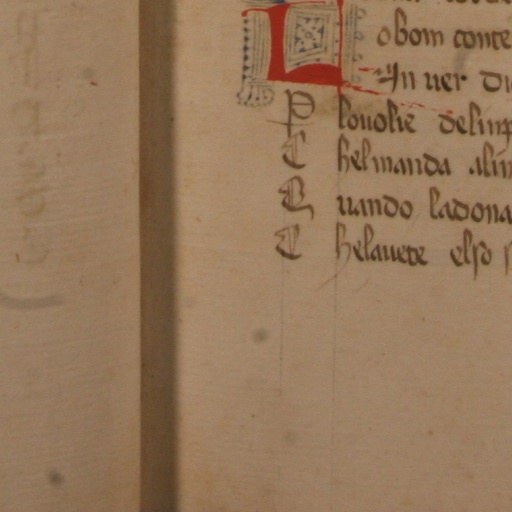 L
obom conte
In uer di
P louolie delimp
C helmanda alim
Q uando ladona
C helauete elso s